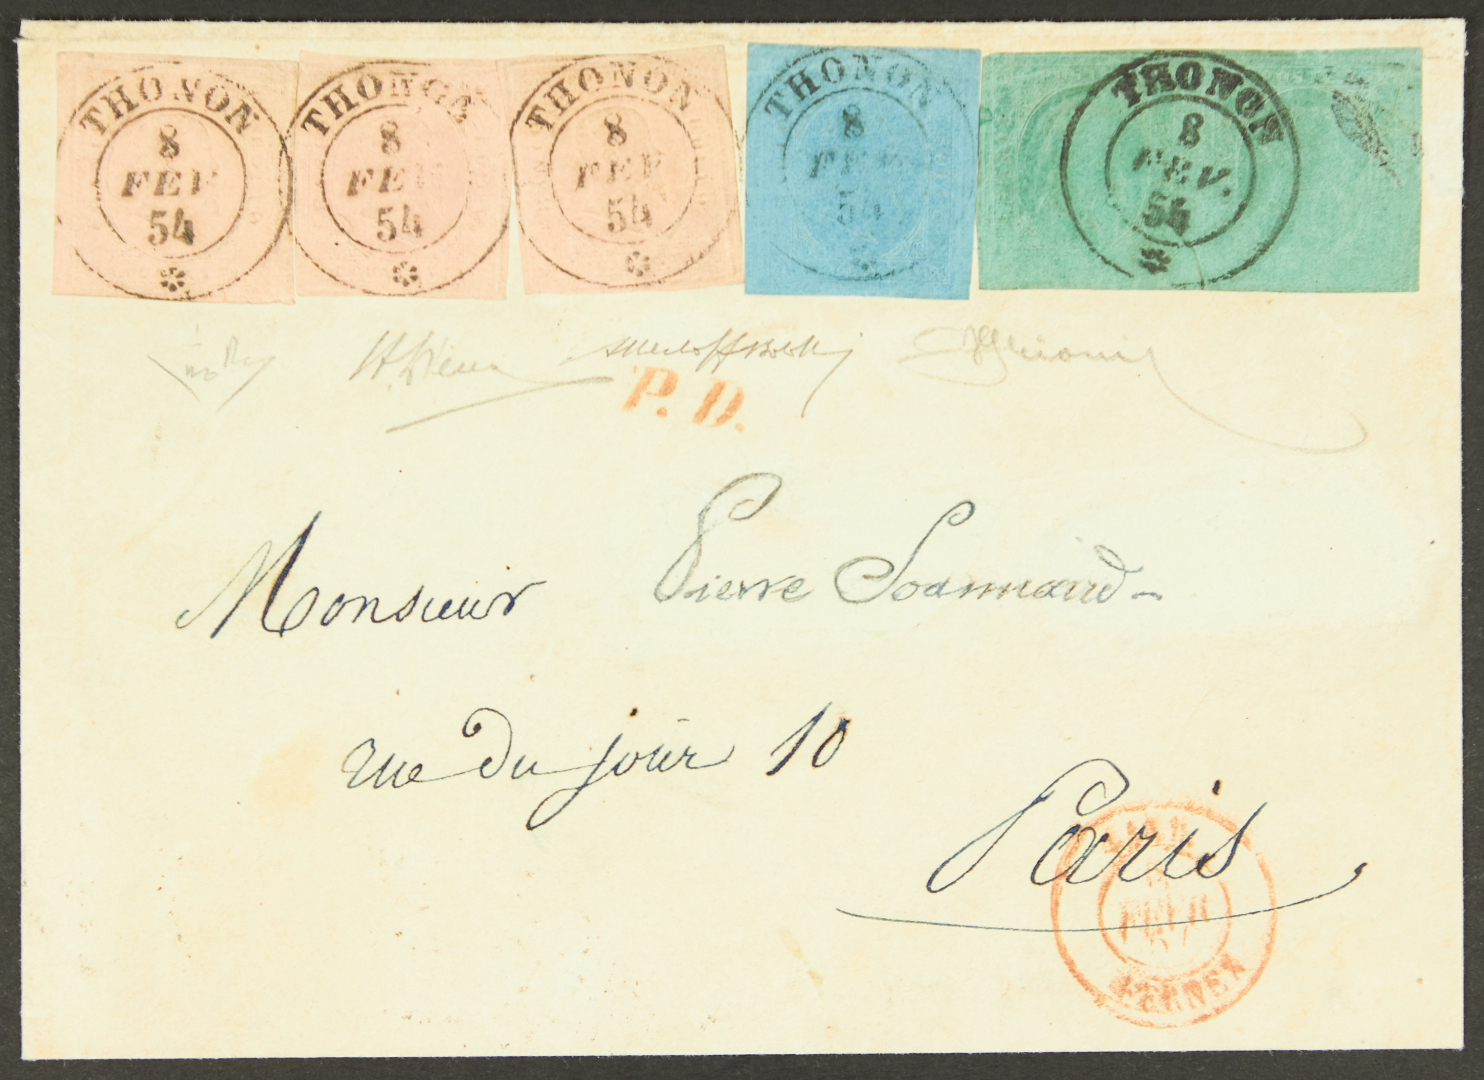 THONON 8 FEV 54
THONON 8 FEV 54
THONON 8 FEV 54
THONON 8 FEV 54
THONON 8 FEV. 54
P. D.
Monsieur Pierre
rue du jour 10
Paris
SARD. FERNEX